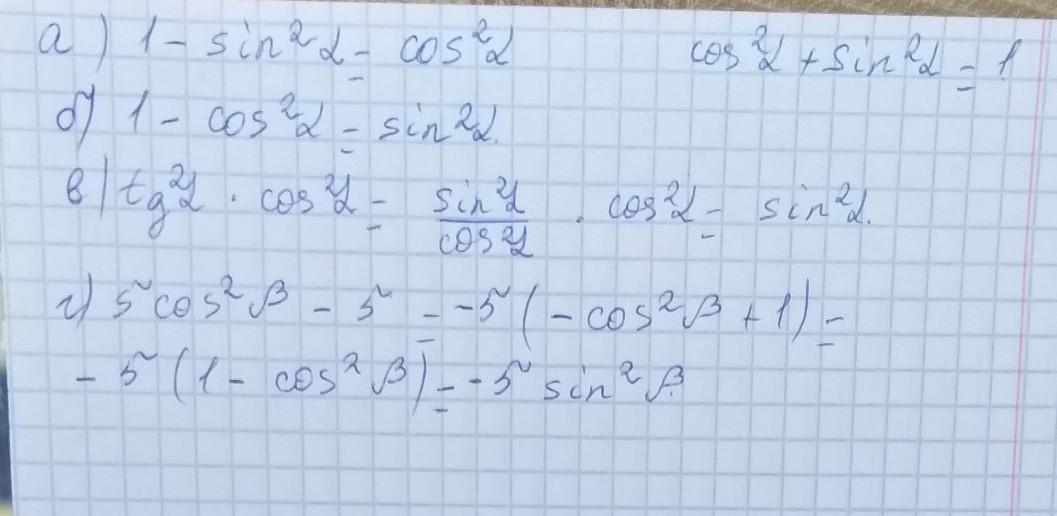 а) 1 - sin²α = cos²α cos²α + sin²α = 1
б) 1 - cos²α = sin²α.
в) tg²α · cos²α = sin²α/cos²α · cos²α = sin²α.
г) 5cos²β - 5 = -5(-cos²β + 1) =
- 5(1 - cos²β) = -5 sin²β.